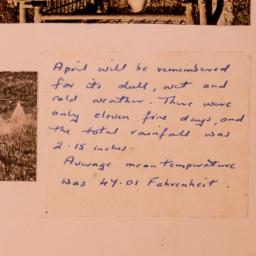 April will be remembered
for its dull, wet and
cold weather. There were
only eleven fine days, and
the total rainfall was
2.15 inches.
Average mean temperature
was 47.01 Fahrenheit.